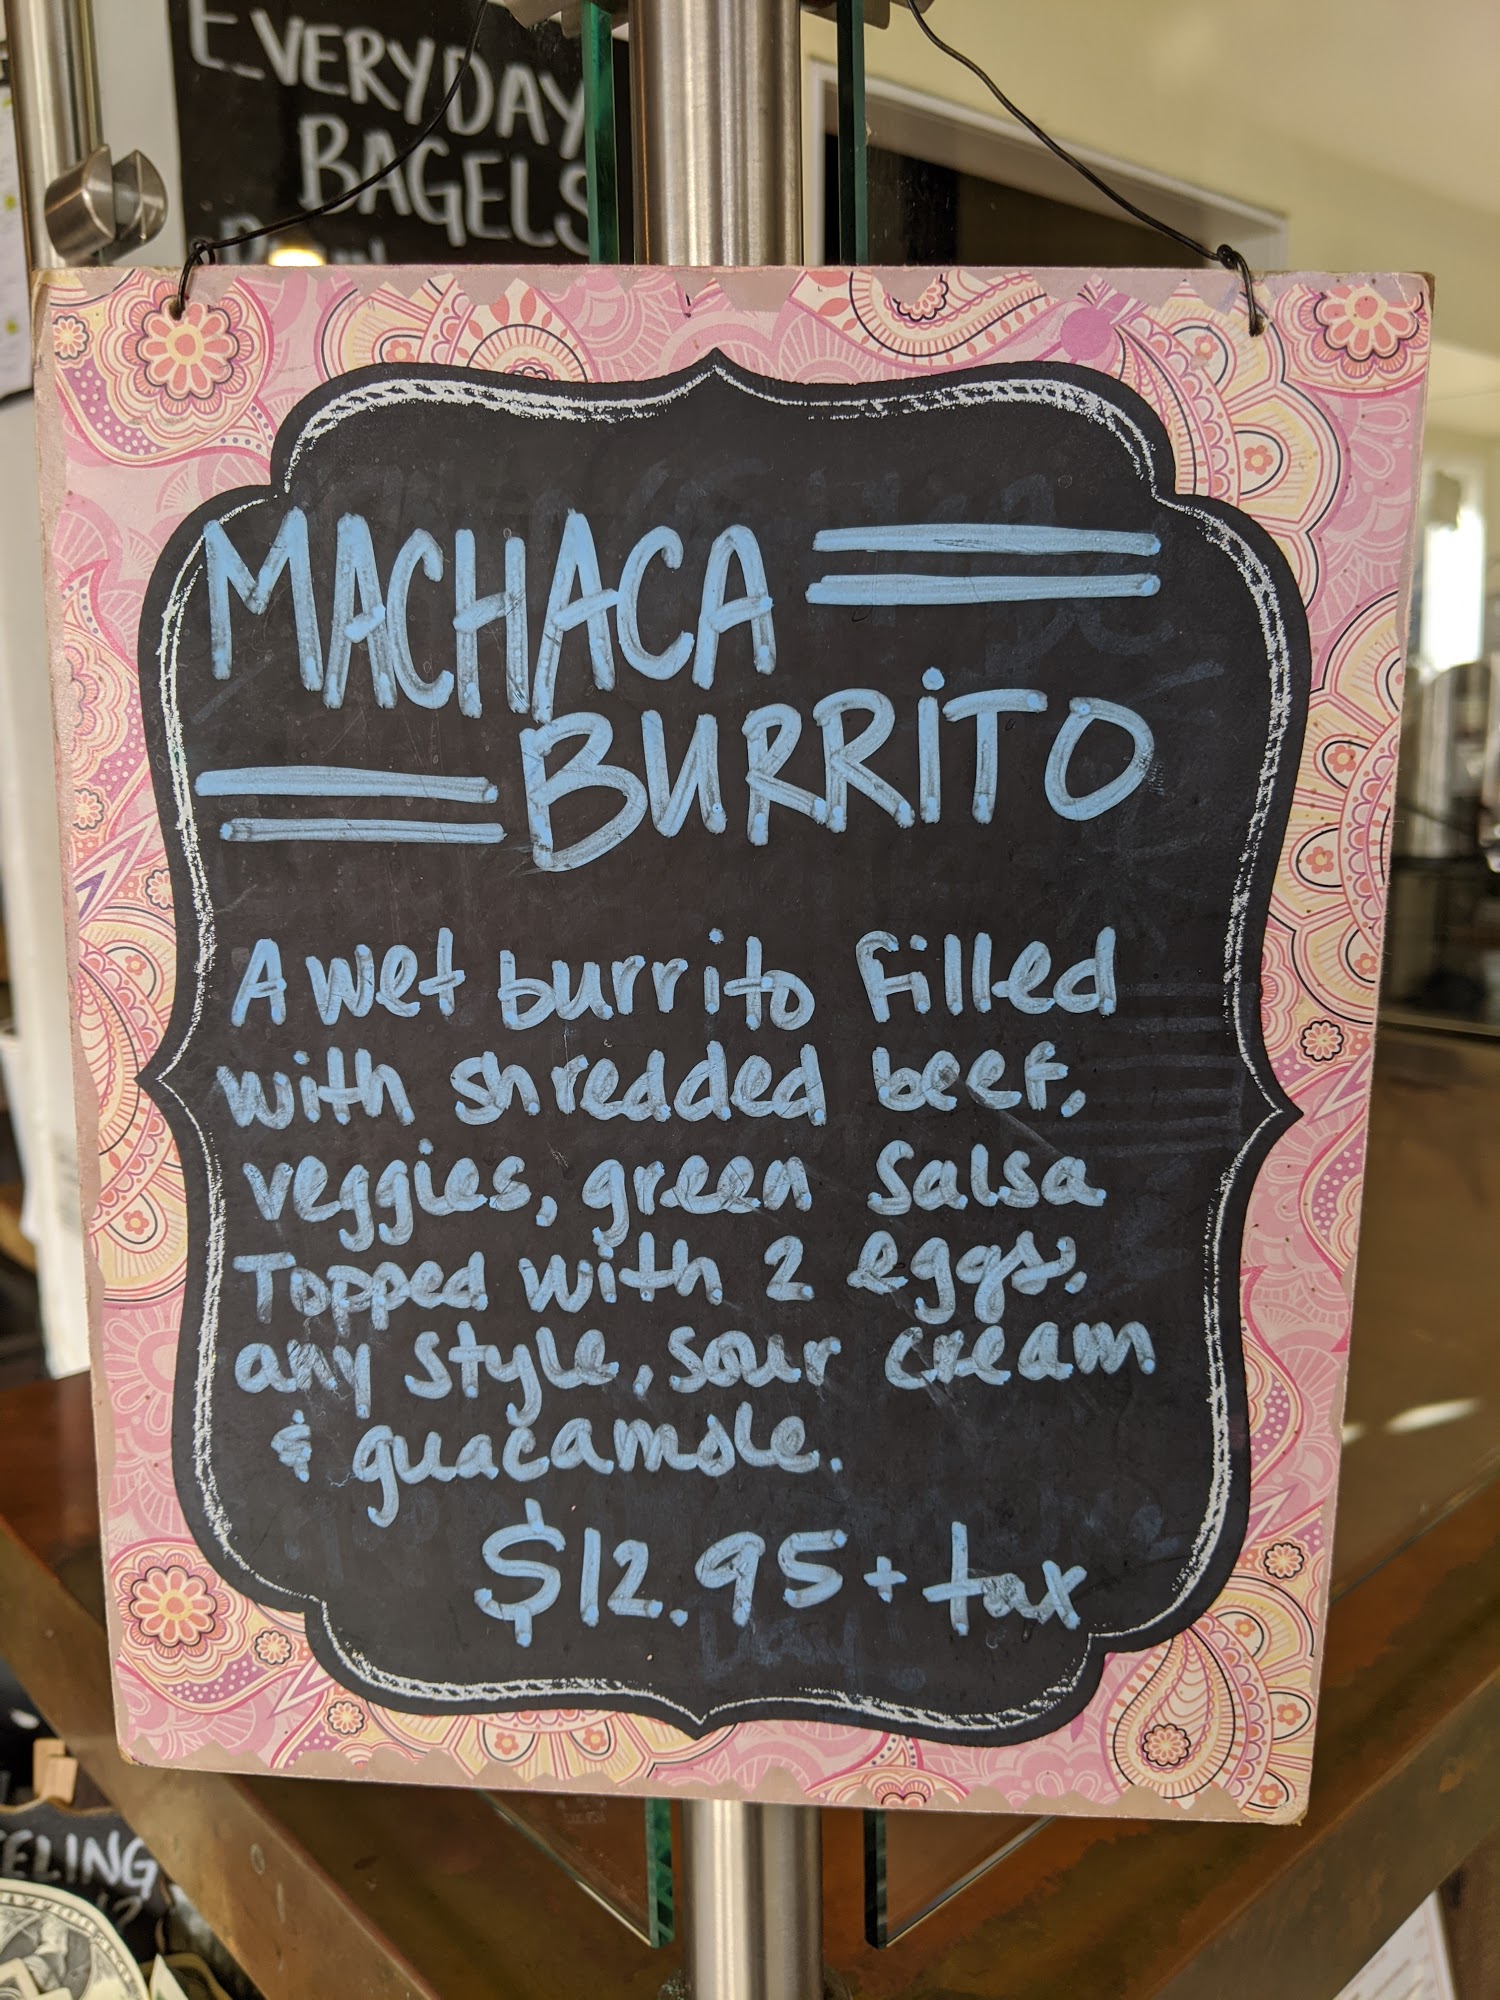 EVERYDAY
BAGELS
MACHACA
BURRITO
A wet burrito filled
with shredded beef,
veggies, green salsa
Topped with 2 eggs,
any style, sour cream
& guacamole.
$12.95 + tax